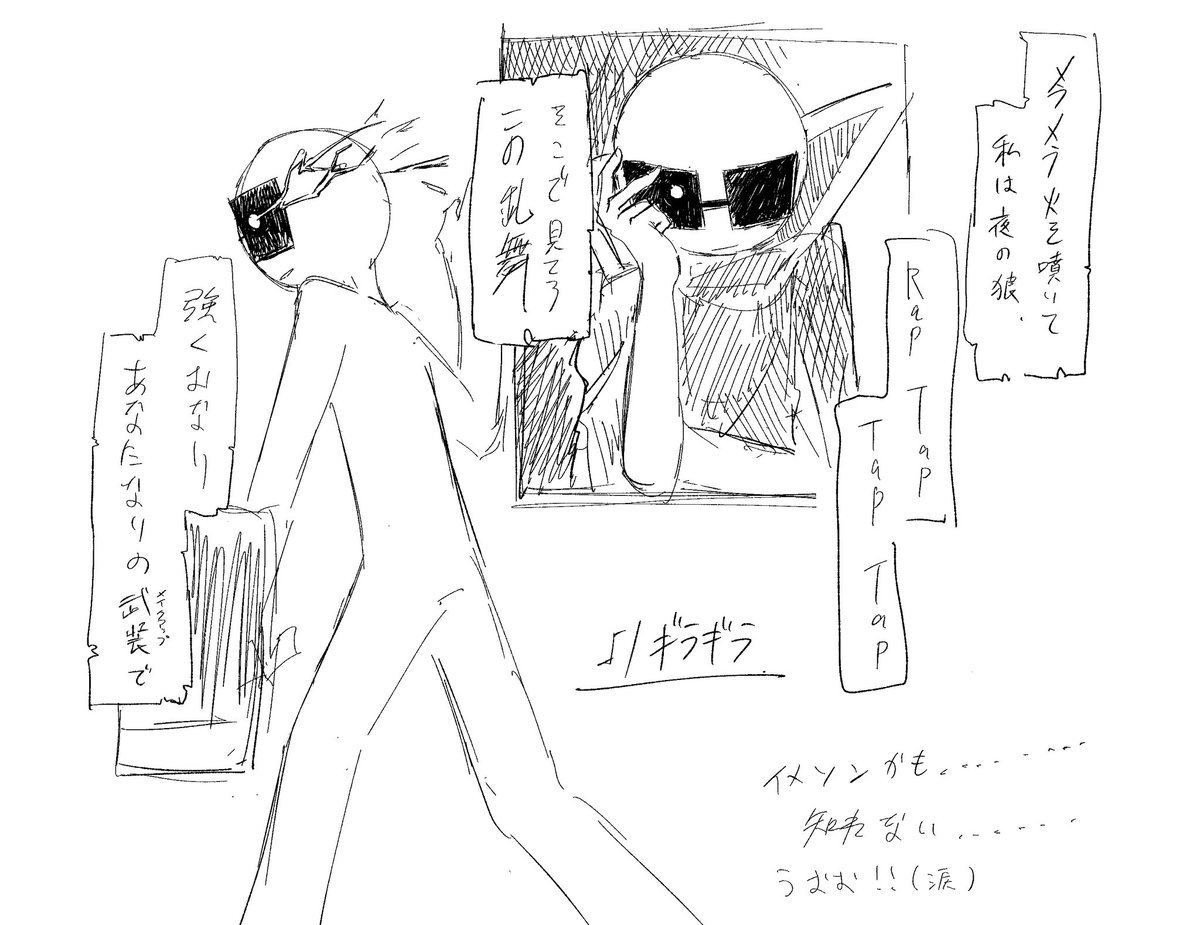 メラメラ火を噴いて
私は夜の狼、
Rap Tap
Tap Tap
そこで見てろ
この乱舞
強くおなり
あなたなりの武装で
メイクアップ
♪/ギラギラ
イメソンかも........
知れない........
うおお!!(涙)